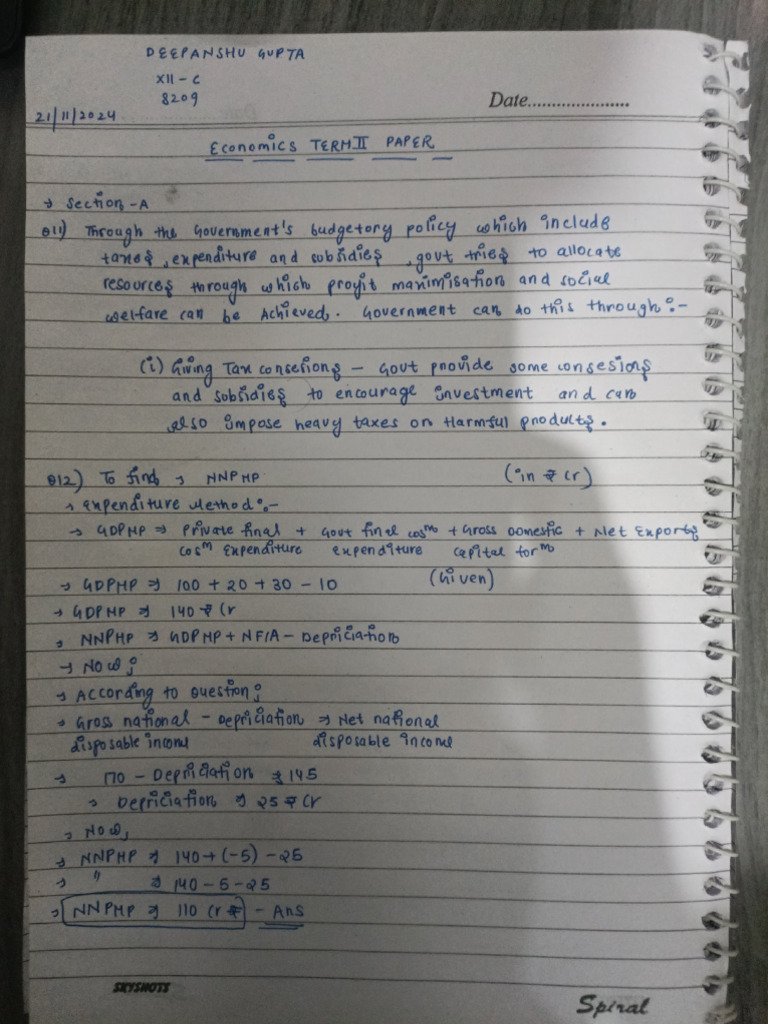 DEEPANSHU GUPTA
XII - C
8209
Date......................
21/11/2024
Economics TERM II PAPER
→ Section - A
Q11) Through the Government's budgetory policy which include
taxes, expenditure and subsidies, govt tries to allocate
resources through which profit maximisation and social
welfare can be Achieved. Government can do this through :-
(i) Giving Tax consesions - Govt provide some consesions
and subsidies to encourage investment and can
also impose heavy taxes on Harmful products.
Q12) To find → NNPMP (in ₹ Cr)
→ Expenditure Method :-
→ GDPMP ⇒ Private final + Govt final cosⁿ + Gross Domestic + Net Exports
cosⁿ Expenditure expenditure capital forⁿ
→ GDPMP ⇒ 100 + 20 + 30 - 10 (Given)
→ GDPMP ⇒ 140 ₹ Cr
→ NNPMP ⇒ GDPMP + NFIA - Depriciation
→ Now ;
→ According to question ;
→ Gross national - Depriciation ⇒ Net national
disposable income disposable income
→ 170 - Depriciation ⇒ 145
→ Depriciation ⇒ 25 ₹ Cr
→ Now,
→ NNPMP ⇒ 140 + (-5) - 25
→ " ⇒ 140 - 5 - 25
→ NNPMP ⇒ 110 Cr ₹ - Ans
SKYSHOTS
Spiral